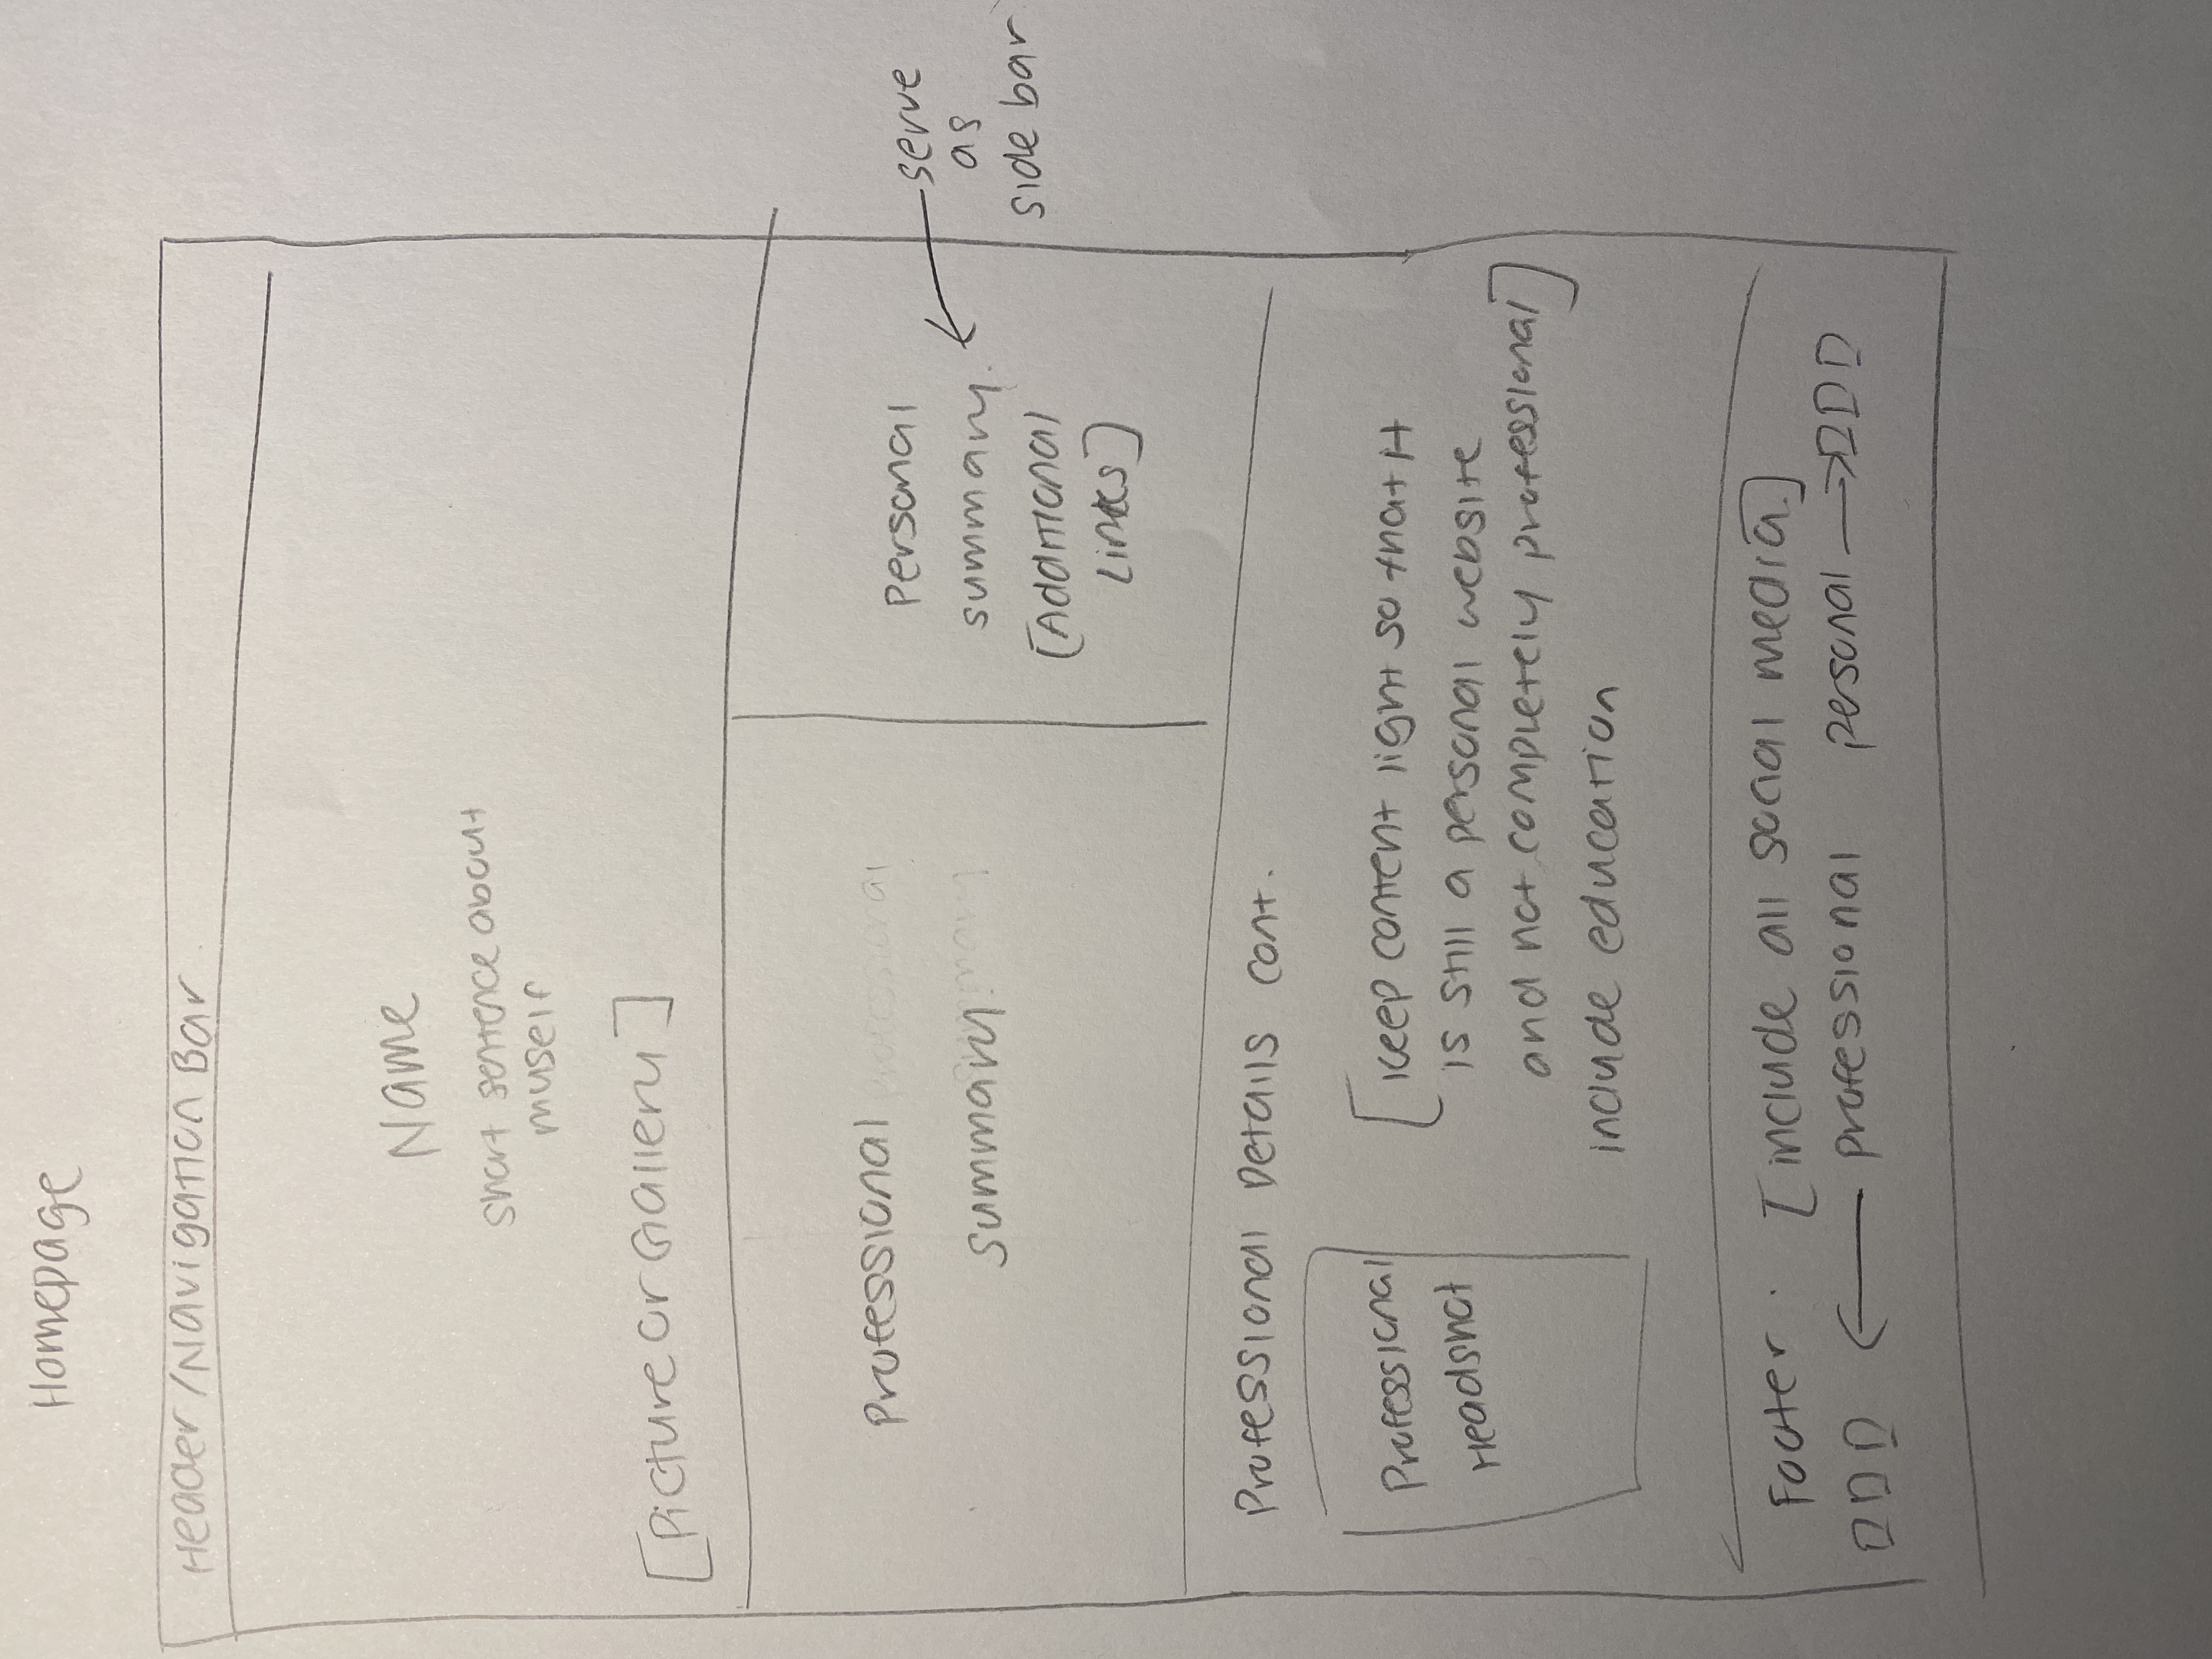 Homepage
Header/Navigation Bar
Name
short sentence about
myself
[Picture or Gallery]
Professional professional
summary. summary
Personal
summary.
[Additional
Links]
serve
as
side bar
Professional Details cont.
Professional
Headshot
[Keep content light so that it
is still a personal website
and not completely professional]
include education
Footer. [include all social media.]
professional personal